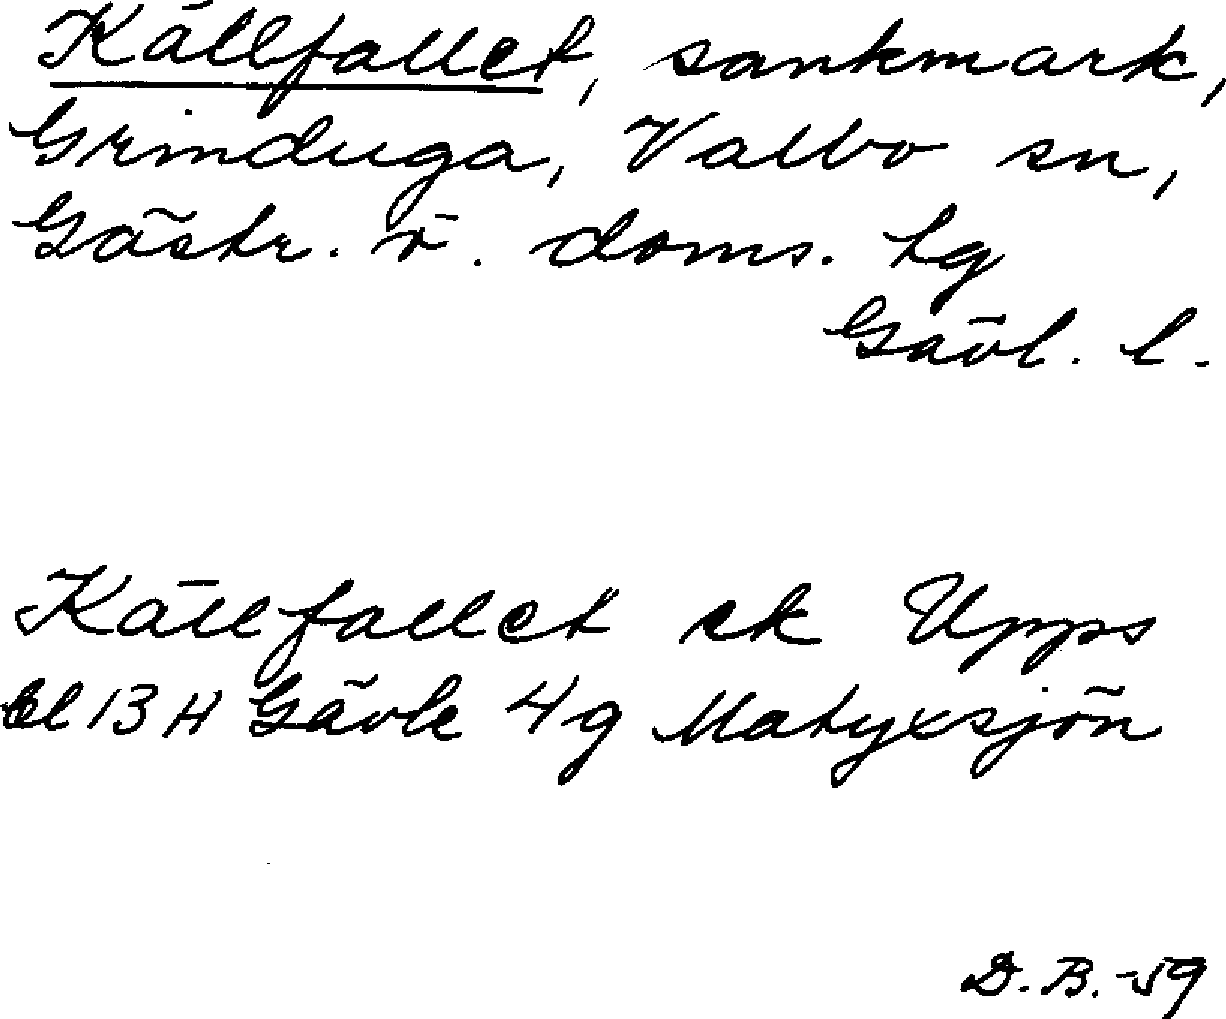 Källfallet, sankmark,
Grinduga, Valbo sn,
Gästr. ö. doms. tg
Gävl. l.
Källfallet ek Upps
bl 13 H Gävle 4g Matyxsjön
D.B.-59